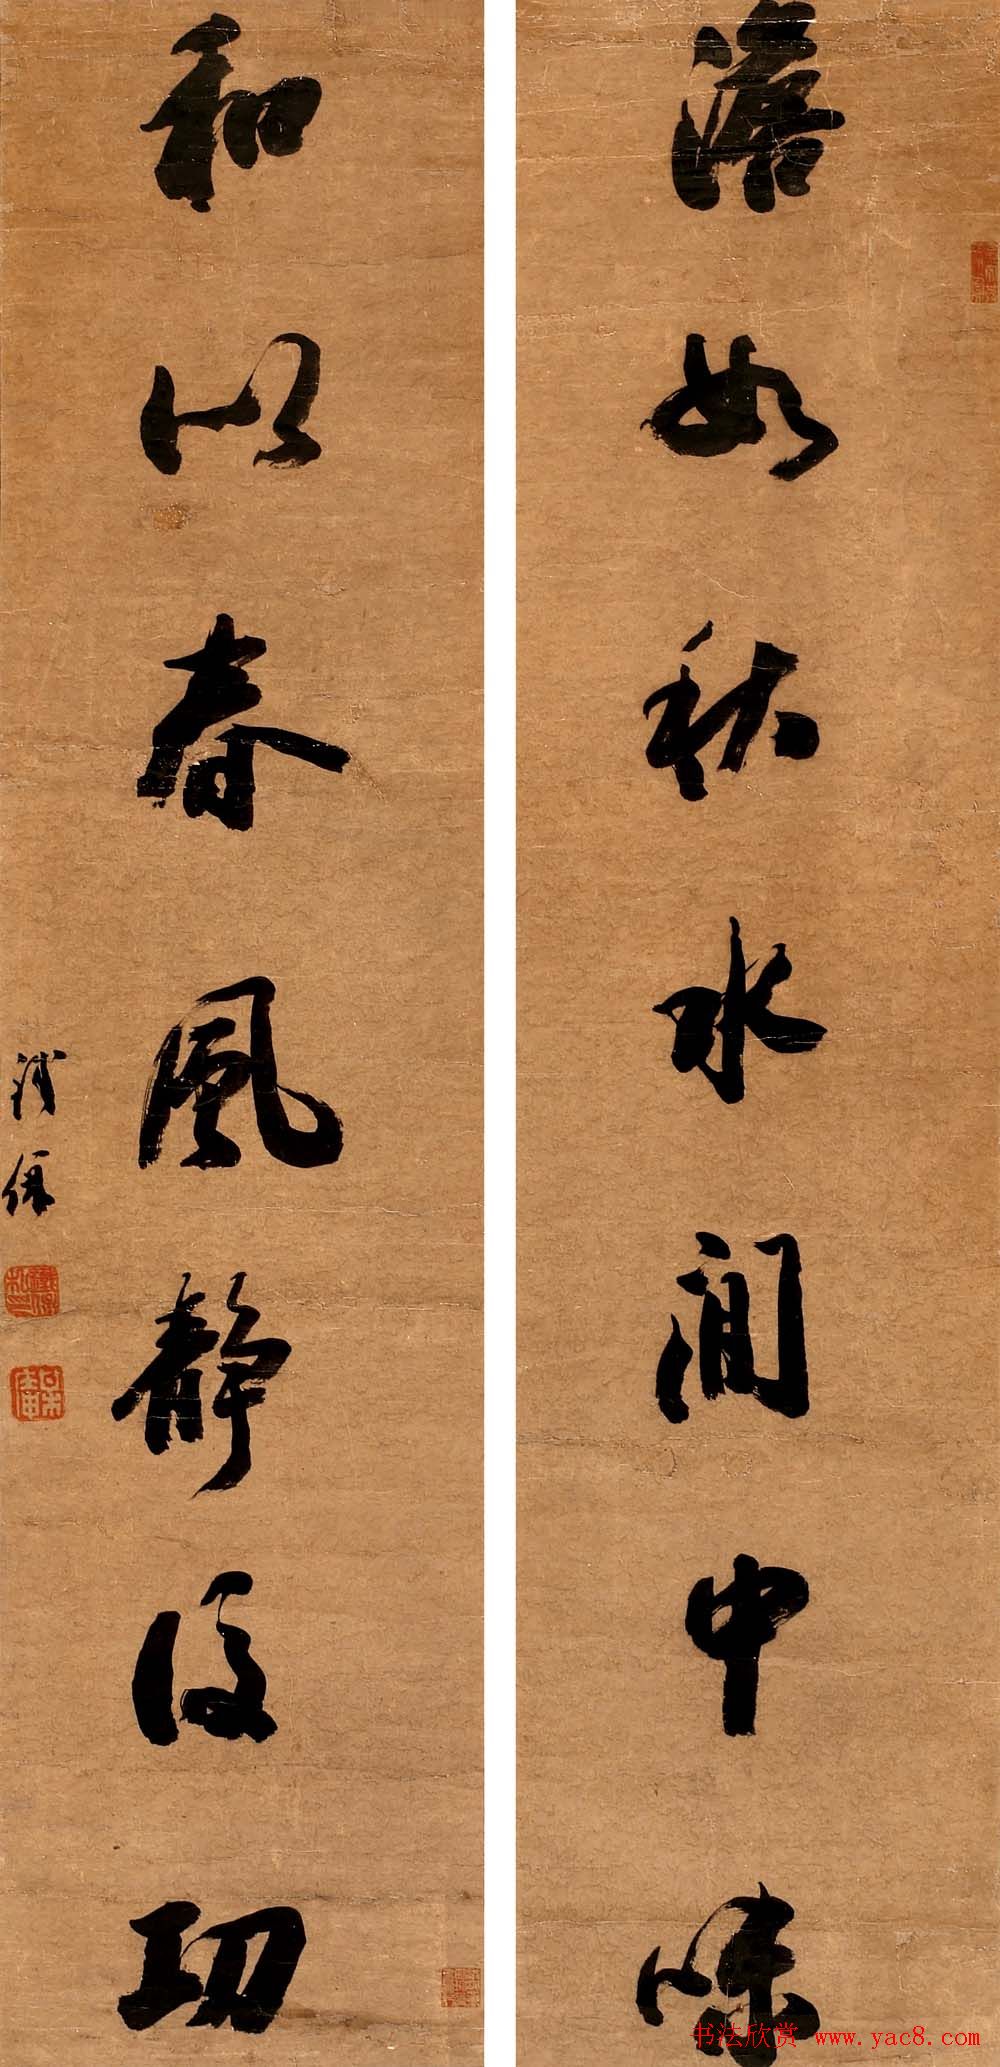 澹如秋水閒中味
和以春風靜後功
鐵保
書法欣赏 www.yac8.com